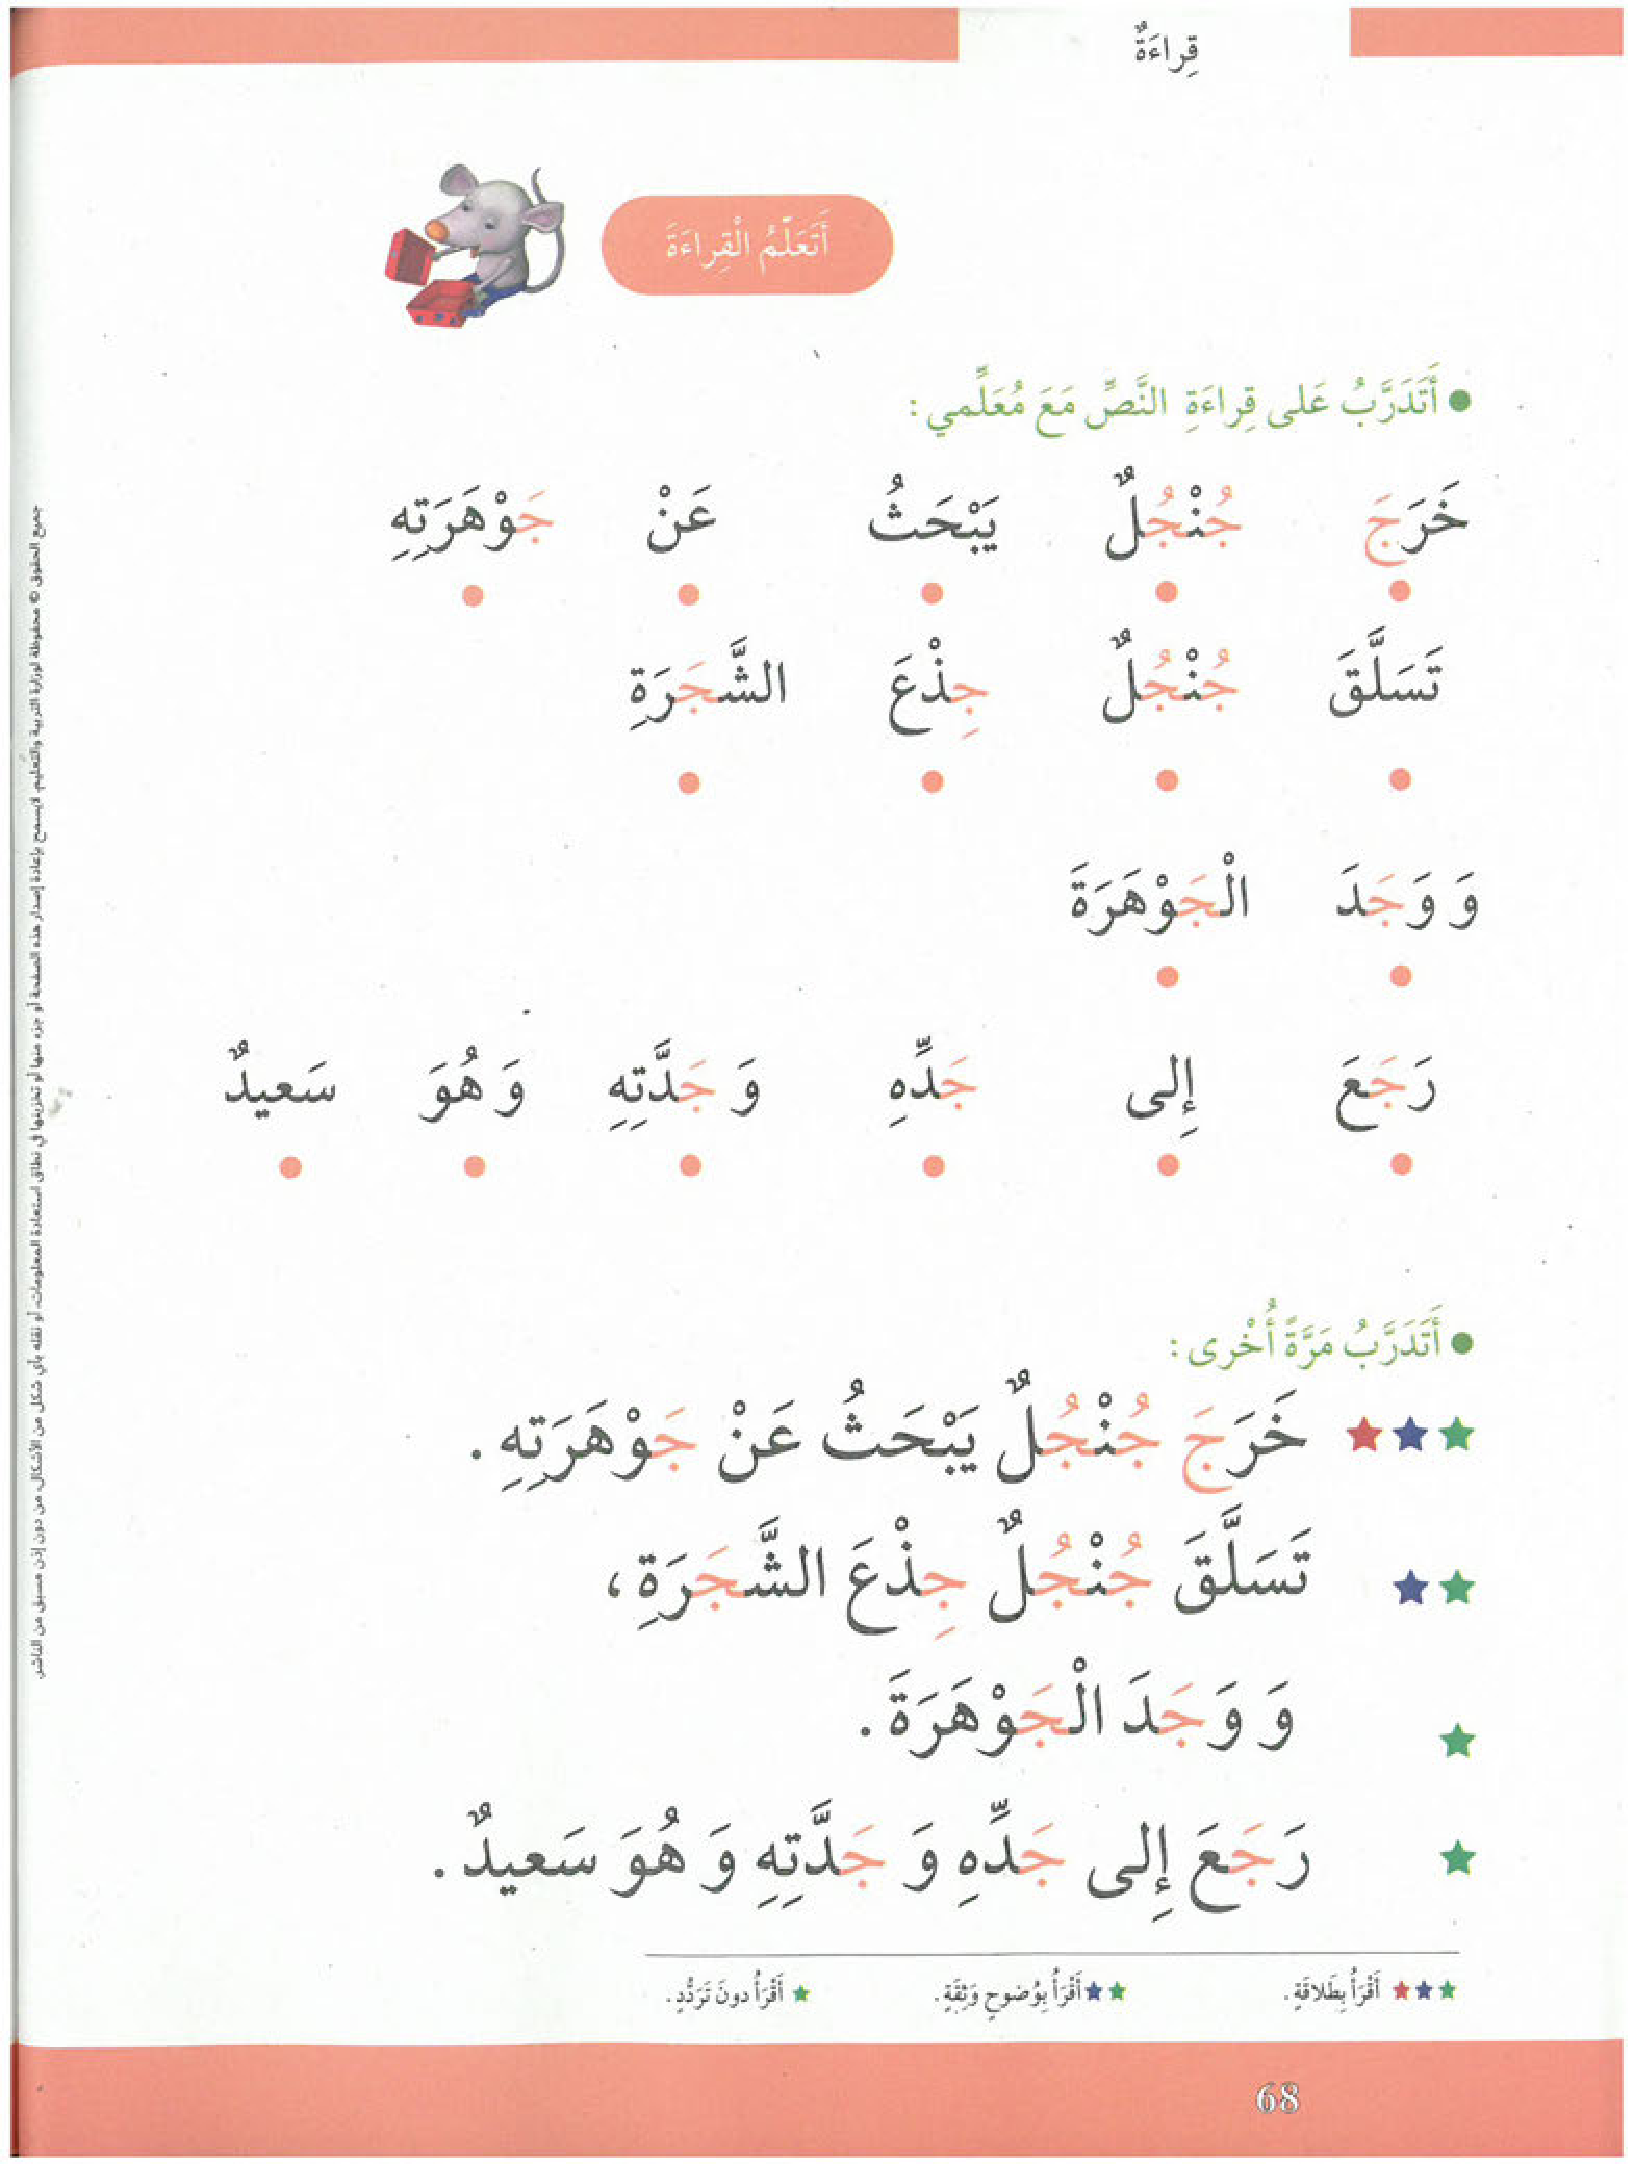 قِراءَةٌ
أَتَعَلَّمُ الْقِراءَةَ
أَتَدَرَّبُ عَلى قِراءَةِ النَّصِّ مَعَ مُعَلِّمي:
خَرَجَ جُنْجُلٌ يَبْحَثُ عَنْ جَوْهَرَتِهِ
تَسَلَّقَ جُنْجُلٌ جِذْعَ الشَّجَرَةِ
وَ وَجَدَ الْجَوْهَرَةَ
رَجَعَ إِلى جَدِّهِ وَ جَدَّتِهِ وَ هُوَ سَعيدٌ
أَتَدَرَّبُ مَرَّةً أُخْرى:
خَرَجَ جُنْجُلٌ يَبْحَثُ عَنْ جَوْهَرَتِهِ.
تَسَلَّقَ جُنْجُلٌ جِذْعَ الشَّجَرَةِ،
وَ وَجَدَ الْجَوْهَرَةَ.
رَجَعَ إِلى جَدِّهِ وَ جَدَّتِهِ وَ هُوَ سَعيدٌ.
أَقْرَأُ بِطَلاقَةٍ. أَقْرَأُ بِوُضوحٍ وَثِقَةٍ. أَقْرَأُ دونَ تَرَدُّدٍ.
68
جميع الحقوق © محفوظة لوزارة التربية والتعليم. لايسمح بإعادة إصدار هذه الصفحة أو جزء منها أو تخزينها في نطاق استعادة المعلومات، أو نقله بأي شكل من الأشكال، من دون إذن مسبق من الناشر.